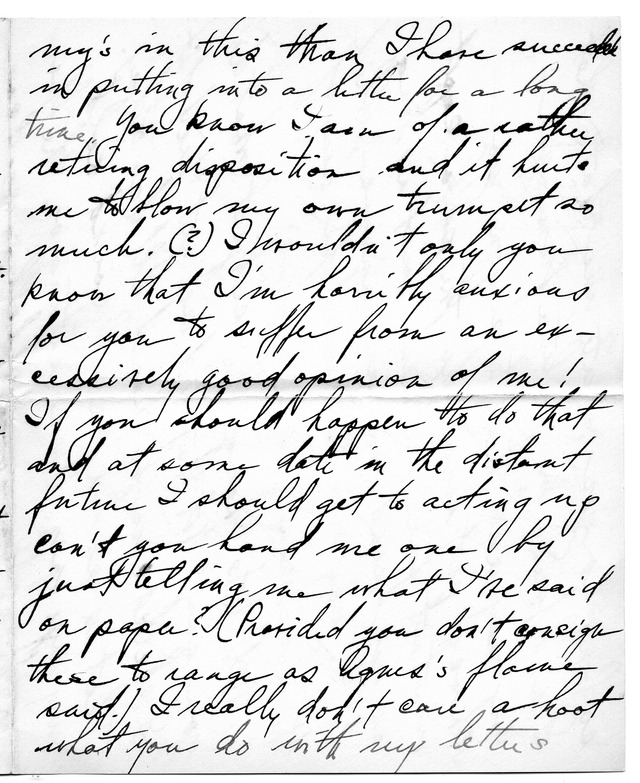 my's in this than I have succeeded
in putting into a letter for a long
time. You know I am of a rather
retiring disposition and it hurts
me to blow my own trumpet so
much. (?) I wouldn't only you
know that I'm horribly anxious
for you to suffer from an ex-
cessively good opinion of me!
If you should happen to do that
and at some date in the distant
future I should get to acting up
can't you hand me one by
just telling me what I've said
on paper? (Provided you don't consign
these to range as Agnes's flame
said.) I really don't care a hoot
what you do with my letters